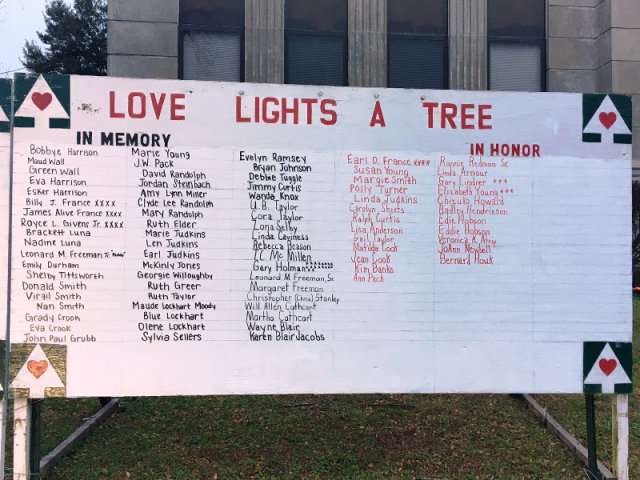 LOVE LIGHTS A TREE
IN MEMORY
Bobbye Harrison
Maud Wall
Green Wall
Eva Harrison
Esker Harrison
Billy J. France xxxx
James Alive France xxxx
Royce L. Givens Jr. xxxx
Brackett Luna
Nadine Luna
Leonard M. Freeman Jr.
Emily Durham
Shelby Tittsworth
Donald Smith
Virgil Smith
Nan Smith
Grady Crook
Eva Crook
John Paul Grubb
Marie Young
J.W. Pack
David Randolph
Jordan Steinbach
Amy Lynn Miller
Clyde Lee Randolph
Mary Randolph
Ruth Elder
Marie Judkins
Len Judkins
Earl Judkins
McKinly Jones
Georgie Willoughby
Ruth Greer
Ruth Taylor
Maude Lockhart Moody
Blue Lockhart
Olene Lockhart
Sylvia Sellers
Evelyn Ramsey
Bryan Johnson
Debbie Tuggle
Jimmy Curtis
Wanda Knox
U.B. Taylor
Cora Taylor
Lona Selby
Linda Caviness
Rebecca Beason
J.C. McMillen
Gary Holman
Leonard M. Freeman, Sr.
Margaret Freeman
Christopher (Chris) Stanley
Will Allen Cathcart
Martha Cathcart
Wayne Blair
Karen Blair Jacobs
Earl D. France xxxx
Susan Young
Margie Smith
Polly Turner
Linda Judkins
Carolyn Sheets
Ralph Curtis
Lisa Anderson
Gail Taylor
Matilda Cook
Jean Cook
Kim Banks
Ann Pack
IN HONOR
Ronnie Redmon Sr.
Linda Armour
Gary Lindner ***
Elizabeth Young ***
Chizuko Howard
Radley Hendrixson
Edie Hobson
Eddie Hobson
Veronica R.
JoAnn Newbell
Bernard Houk